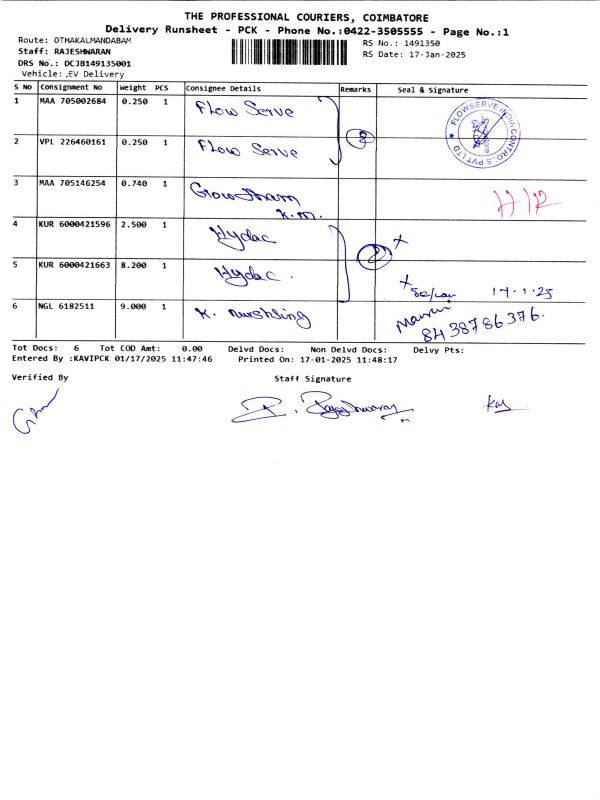 THE PROFESSIONAL COURIERS, COIMBATORE
Delivery Runsheet - PCK - Phone No.:0422-3505555 - Page No.:1
Route: OTHAKALMANDABAM
RS No.: 1491350
Staff: RAJESHWARAN
RS Date: 17-Jan-2025
DRS No.: DCJB149135001
Vehicle: ,EV Delivery
S No Consignment No Weight PCS Consignee Details Remarks Seal & Signature
1 MAA 705002684 0.250 1 Flow Serve
FLOWSERVE INDIA CONTROLS PVT LTD
2 VPL 226460161 0.250 1 Flow Serve
2
3 MAA 705146254 0.740 1 Gowtham
K.M.
H/R
4 KUR 6000421596 2.500 1 Hydac
2 x
5 KUR 6000421663 8.200 1 Hydac.
x
17.1.25
6 NGL 6182511 9.000 1 K.
8438786376.
Tot Docs: 6 Tot COD Amt: 0.00 Delvd Docs: Non Delvd Docs: Delvy Pts:
Entered By :KAVIPCK 01/17/2025 11:47:46 Printed On: 17-01-2025 11:48:17
Verified By Staff Signature
R. Rajeshwaran